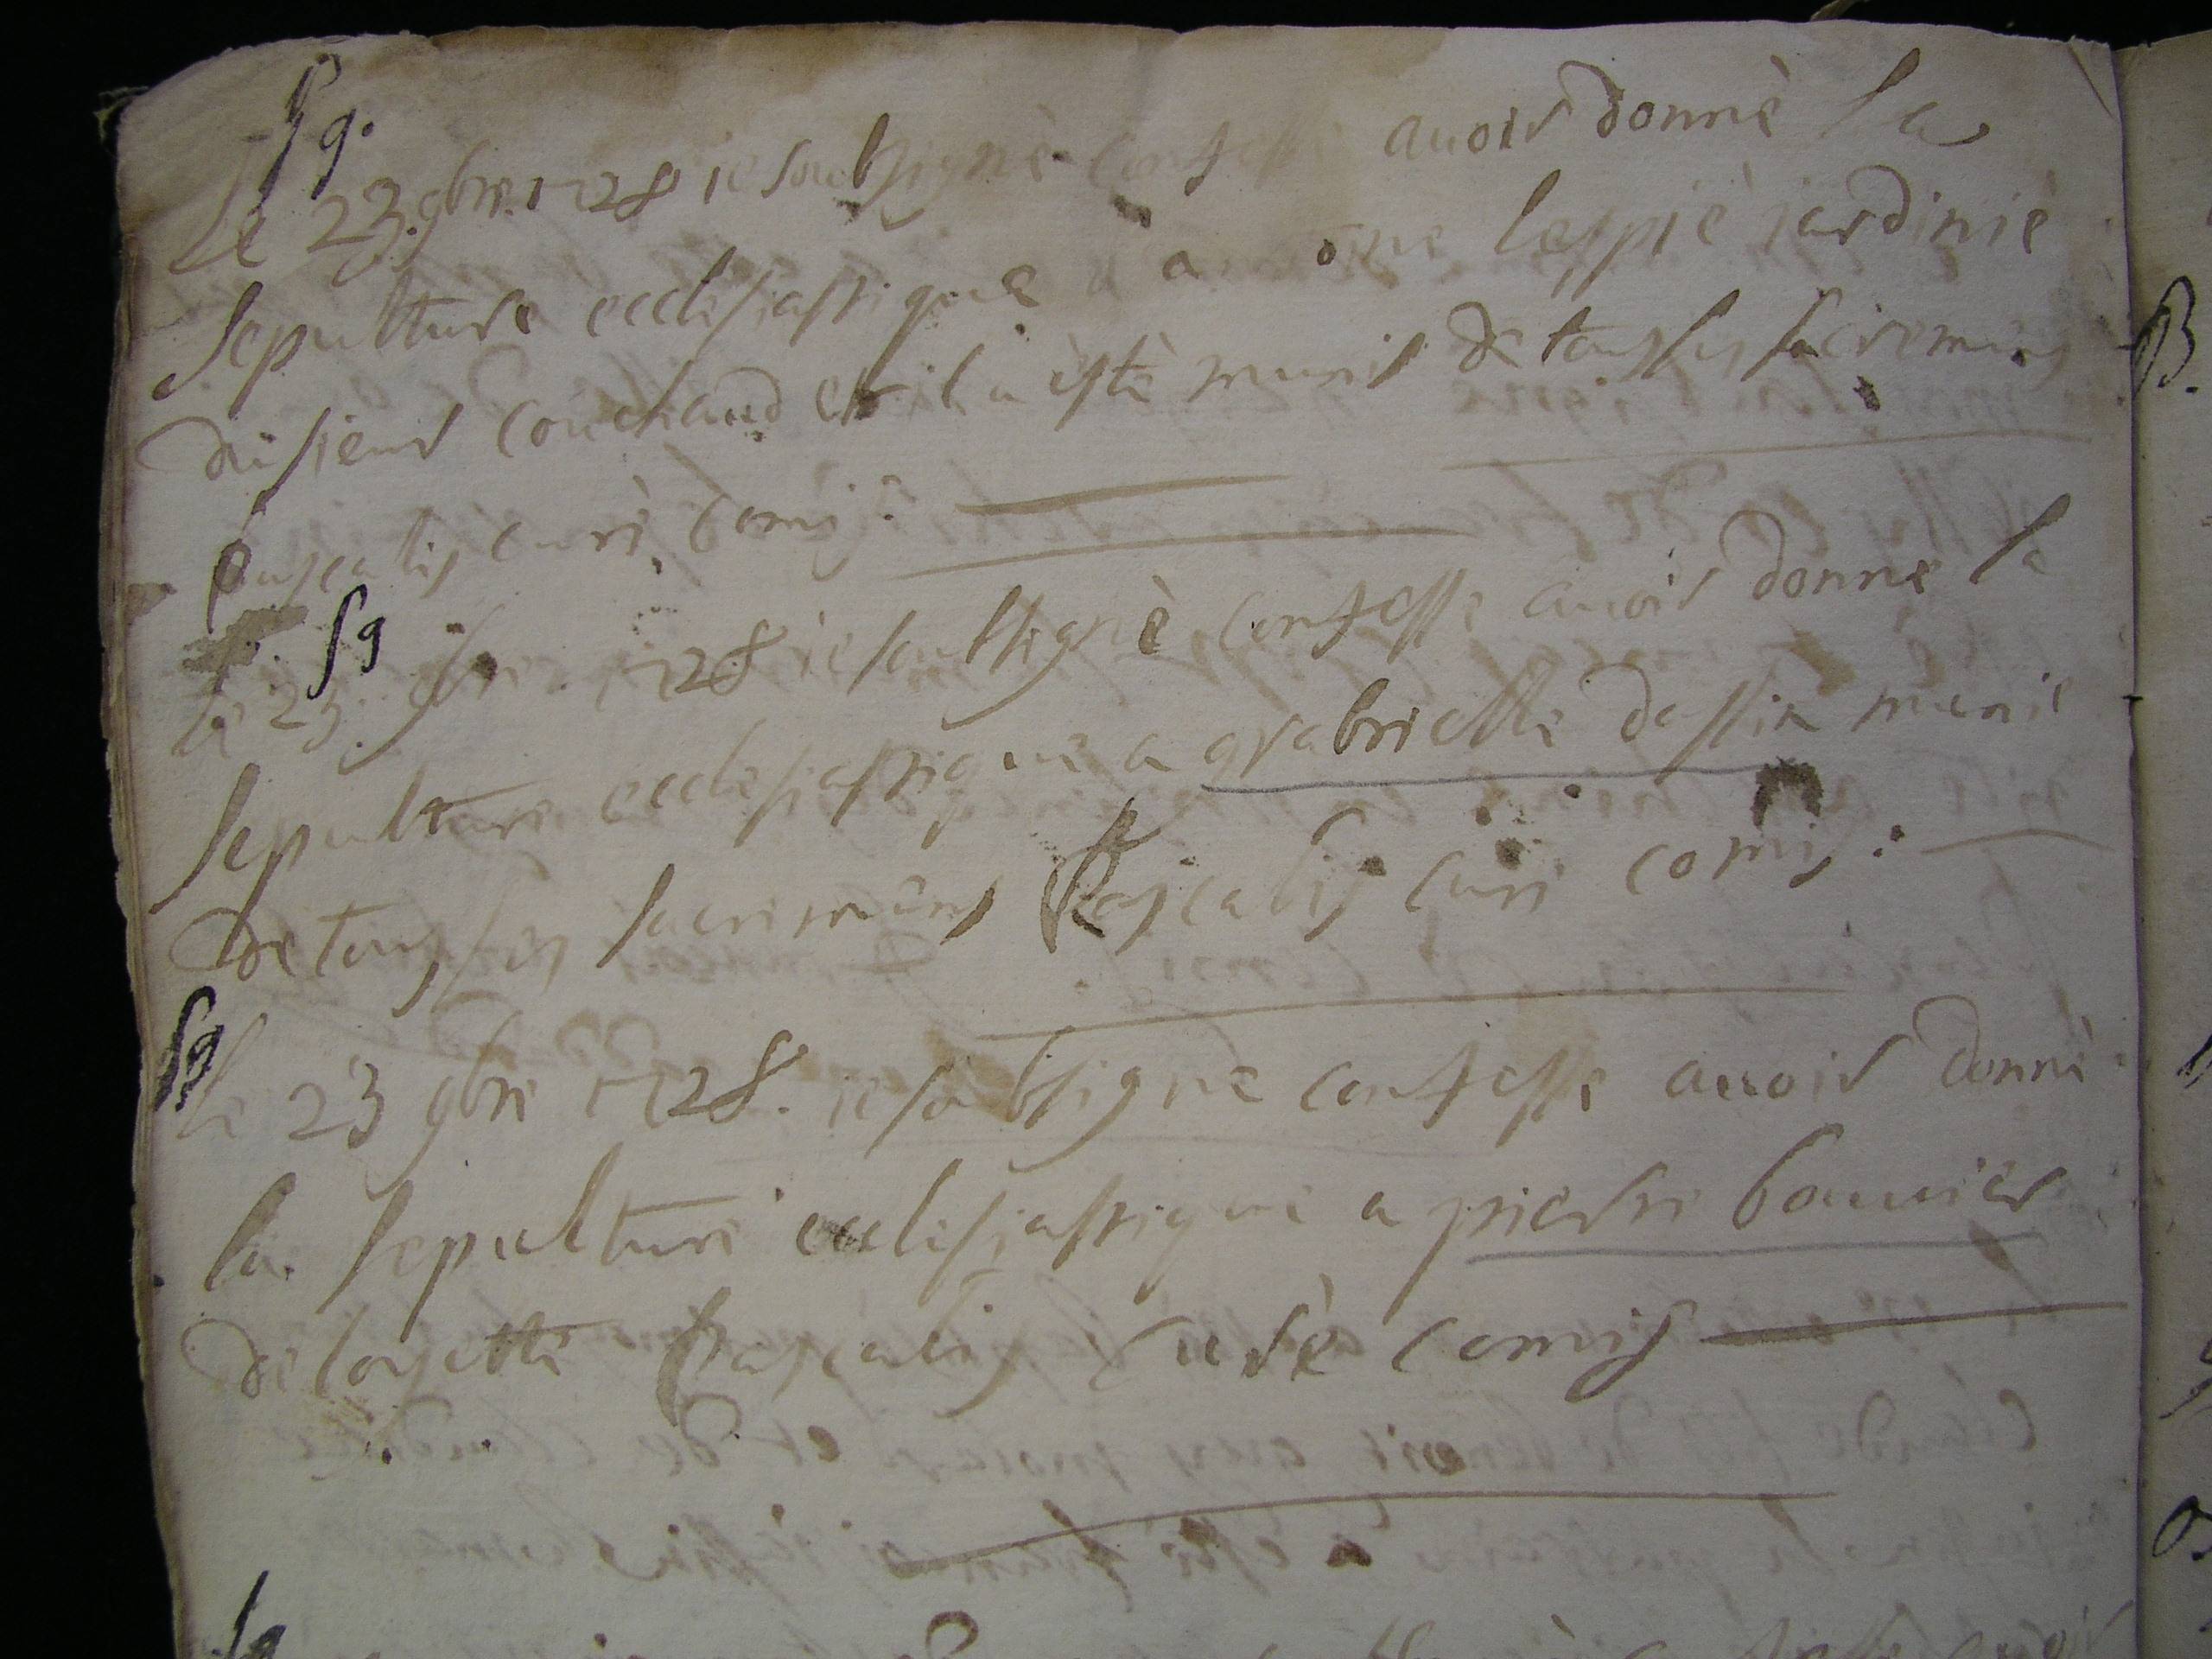 Sg.
Le 23. 9bre. 1728 ie soubsigné confesse auoir donnè la
sepulture ecclesiastique a leppiè jardiniè
du sieur couchaud et il a èstè munis de tous ses sacremens
pascalis curè comis.
Sg
le 23. 9bre 1728 ie soubsignè confesse auoir donne la
sepulture ecclesiastique a gabrielle dassin munie
de tous ses sacremens pascalis curè comis.
Sg
le 23 9bre 1728. ie sobsigne confesse auoir donnè
la sepulture ecclesiastique a pierre bouuier
de loyette pascalis curè comis
Sg